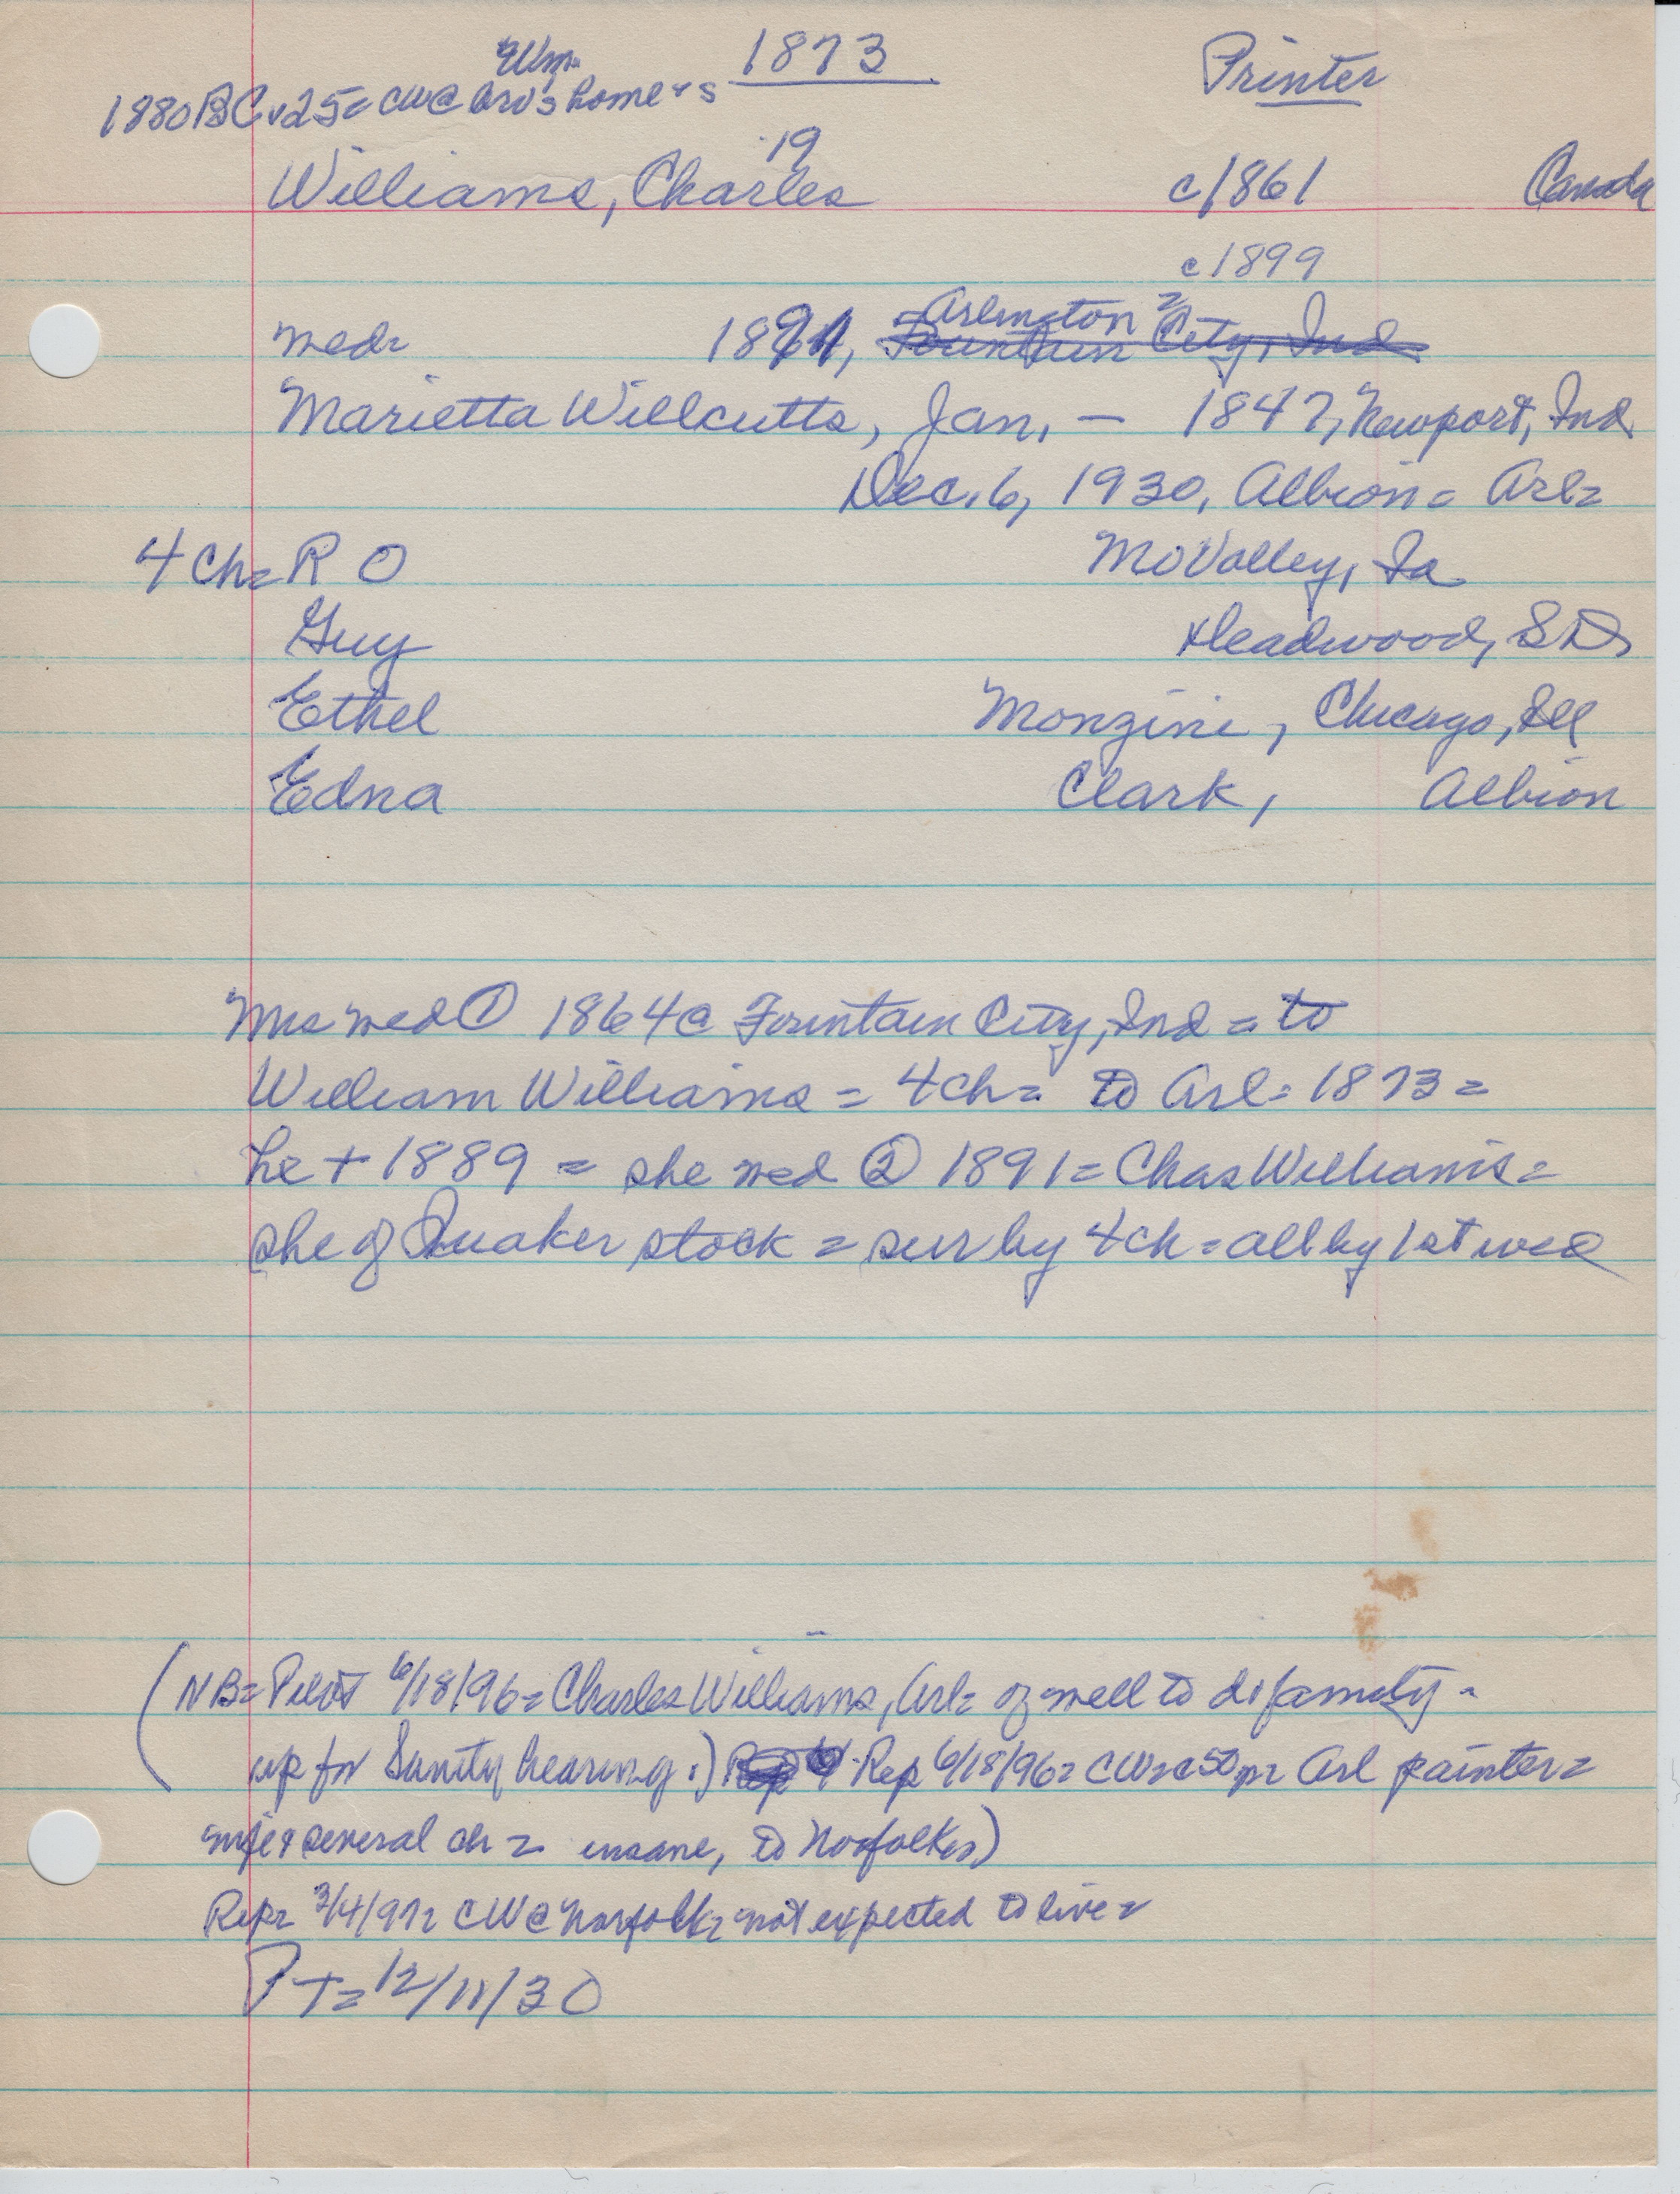 Wm. 1873 Printer
1880 BC v25= CW @ bro's home = s
19
Williams, Charles c1861 Canada
c1899
Arlington =
wed= 1891, Fountain City, Ind
Marietta Willcutts, Jan. — 1847, Newport, Ind
Dec. 6, 1930, Albion = Arl=
4 Ch= R O MoValley, Ia
Guy Deadwood, SD
Ethel Monzini, Chicago, Ill
Edna Clark, Albion
Mrs wed ① 1864 @ Fountain City, Ind = to
William Williams = 4 ch= to Arl= 1873 =
he + 1889 = she wed ② 1891 = Chas Williams =
she of Quaker stock = sur by 4 ch = all by 1st wed
(NB= Pilot 6/18/96= Charles Williams, Arl= of well to do family -
up for Sanity hearing.) Rep 6/18/96= CW= c50 p= Arl painter=
wife & several ch = insane, to Norfolk=)
Rep= 3/4/97= CW @ Norfolk= not expected to live =
P T= 12/11/30